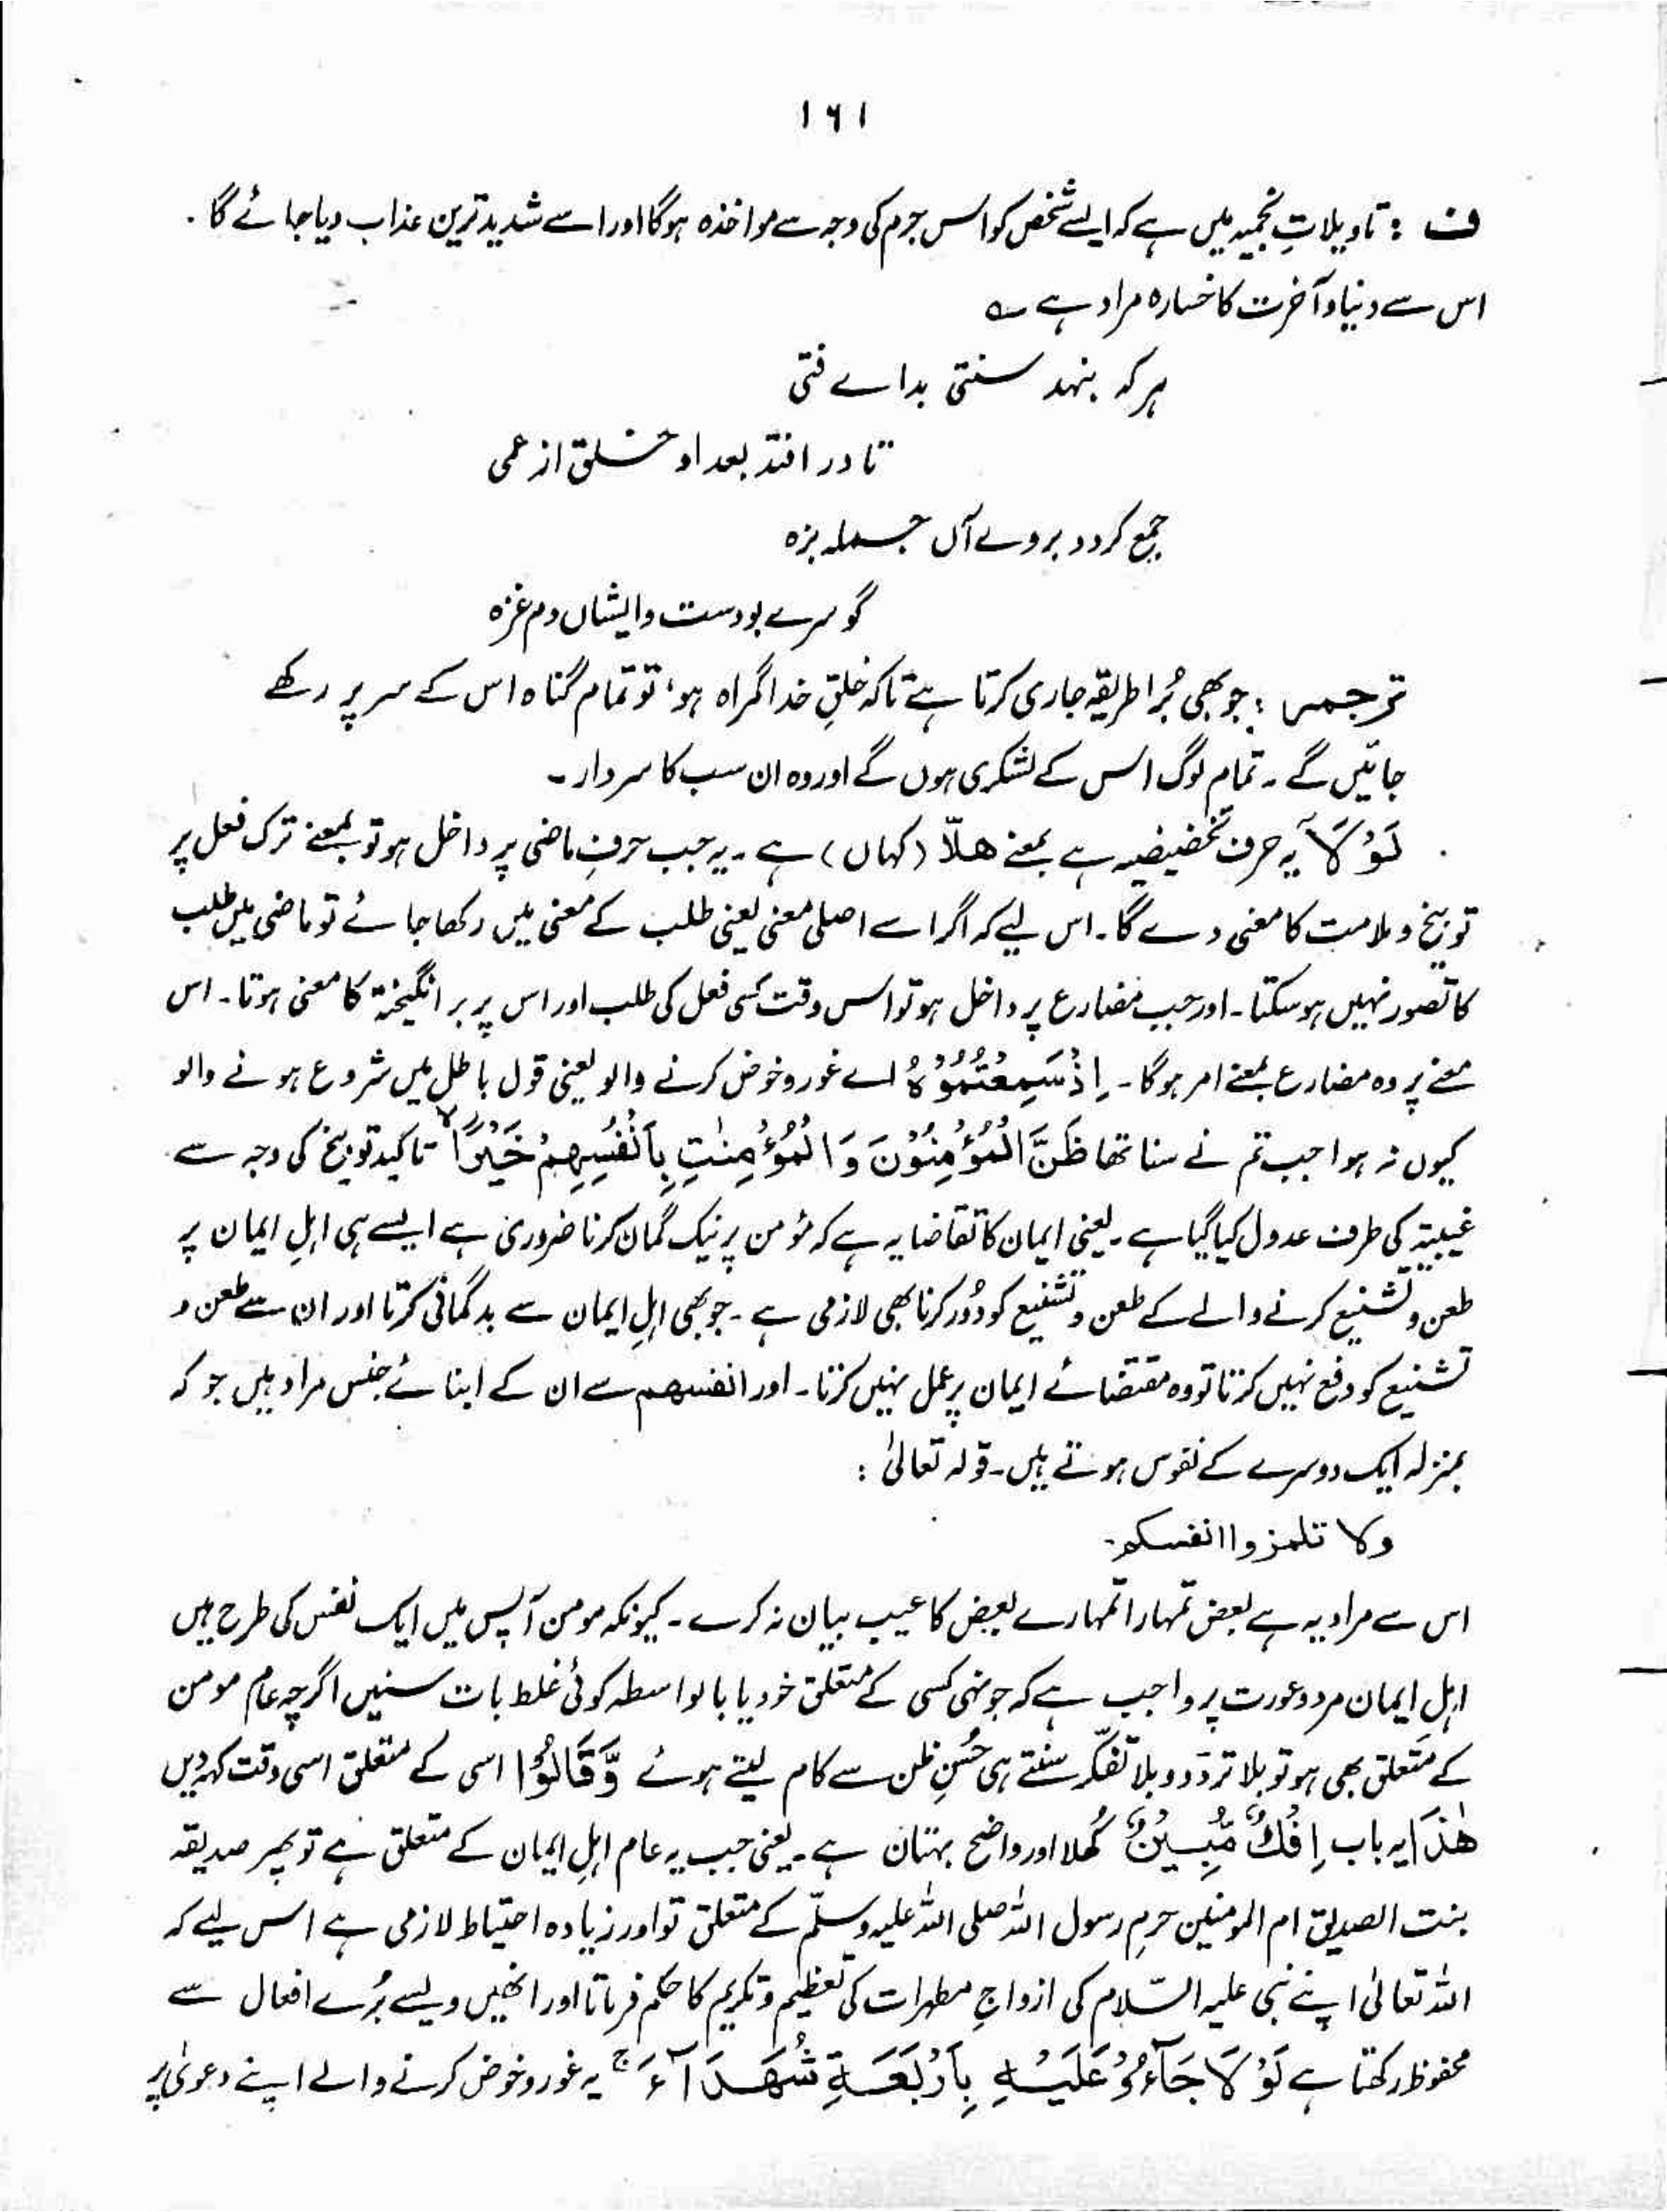 ۱۶۱
ف : تاویلاتِ نجمیہ میں ہے کہ ایسے شخص کو اس جرم کی وجہ سے مواخذہ ہوگا اور اسے شدید ترین عذاب دیا جائے گا .
اس سے دنیا و آخرت کا خسارہ مراد ہے ؎
ہر کہ بنہد سنتی بد اے فتی
تا در افتد بعد او خلق از عمی
جمع گردد بروے آں جملہ بزہ
گو سرے بودست و ایشاں دم غزہ
ترجمہ : جو بھی بُرا طریقہ جاری کرتا ہے تاکہ خلقِ خدا گمراہ ہو ، تو تمام گناہ اس کے سر پر رکھے
جائیں گے ۔ تمام لوگ اس کے لشکری ہوں گے اور وہ ان سب کا سردار ۔
لَوْلَا یہ حرف تخضیضیہ ہے بمعنے ھلّا (کہاں) ہے ۔ یہ جب حرفِ ماضی پر داخل ہو تو بمعنے ترک فعل پر
توبیخ و ملامت کا معنی دے گا ۔ اس لیے کہ اگر اسے اصلی معنی یعنی طلب کے معنی میں رکھا جائے تو ماضی میں طلب
کا تصور نہیں ہوسکتا ۔ اور جب مضارع پر داخل ہو تو اس وقت کسی فعل کی طلب اور اس پر برانگیختہ کا معنی ہوتا ۔ اس
معنے پر وہ مضارع بمعنے امر ہوگا ۔ اِذْ سَمِعْتُمُوْہُ اے غور و خوض کرنے والو یعنی قول باطل میں شروع ہونے والو
کیوں نہ ہوا جب تم نے سنا تھا ظَنَّ الْمُؤْمِنُوْنَ وَالْمُؤْمِنٰتِ بِاَنْفُسِہِمْ خَیْرًا ۙ تاکید توبیخ کی وجہ سے
غیبیۃ کی طرف عدول کیا گیا ہے ۔ یعنی ایمان کا تقاضا یہ ہے کہ مؤمن پر نیک گمان کرنا ضروری ہے ایسے ہی اہلِ ایمان پر
طعن و تشنیع کرنے والے کے طعن و تشنیع کو دُور کرنا بھی لازمی ہے ۔ جو بھی اہلِ ایمان سے بدگمانی کرتا اور ان سے طعن و
تشنیع کو دفع نہیں کرتا تو وہ مقتضائے ایمان پر عمل نہیں کرتا ۔ اور انفسھم سے ان کے ابنائے جنس مراد ہیں جو کہ
بمنزلہ ایک دوسرے کے نفوس ہوتے ہیں ۔ قولہ تعالیٰ :
ولا تلمزوا انفسکم ۔
اس سے مراد یہ ہے بعض تمہارا تمہارے بعض کا عیب بیان نہ کرے ۔ کیونکہ مومن آپس میں ایک نفس کی طرح ہیں
اہلِ ایمان مرد و عورت پر واجب ہے کہ جونہی کسی کے متعلق خود یا بالواسطہ کوئی غلط بات سنیں اگرچہ عام مومن
کے متعلق بھی ہو تو بلا تردّد و بلا تفکّر سنتے ہی حُسنِ ظن سے کام لیتے ہوئے وَّقَالُوْا اسی کے متعلق اسی وقت کہہ دیں
ھٰذَا یہ باب اِفْكٌ مُّبِیْنٌ کُھلا اور واضح بہتان ہے ۔ یعنی جب یہ عام اہلِ ایمان کے متعلق ہے تو پھر صدیقہ
بنت الصدیق ام المومنین حرمِ رسول اللہ صلی اللہ علیہ وسلّم کے متعلق تو اور زیادہ احتیاط لازمی ہے اس لیے کہ
اللہ تعالیٰ اپنے نبی علیہ السّلام کی ازواجِ مطہرات کی تعظیم و تکریم کا حکم فرماتا اور انھیں ویسے بُرے افعال سے
محفوظ رکھتا ہے لَوْلَا جَآءُوْ عَلَیْہِ بِاَرْبَعَۃِ شُھَدَآءَ ۚ یہ غور و خوض کرنے والے اپنے دعویٰ پر